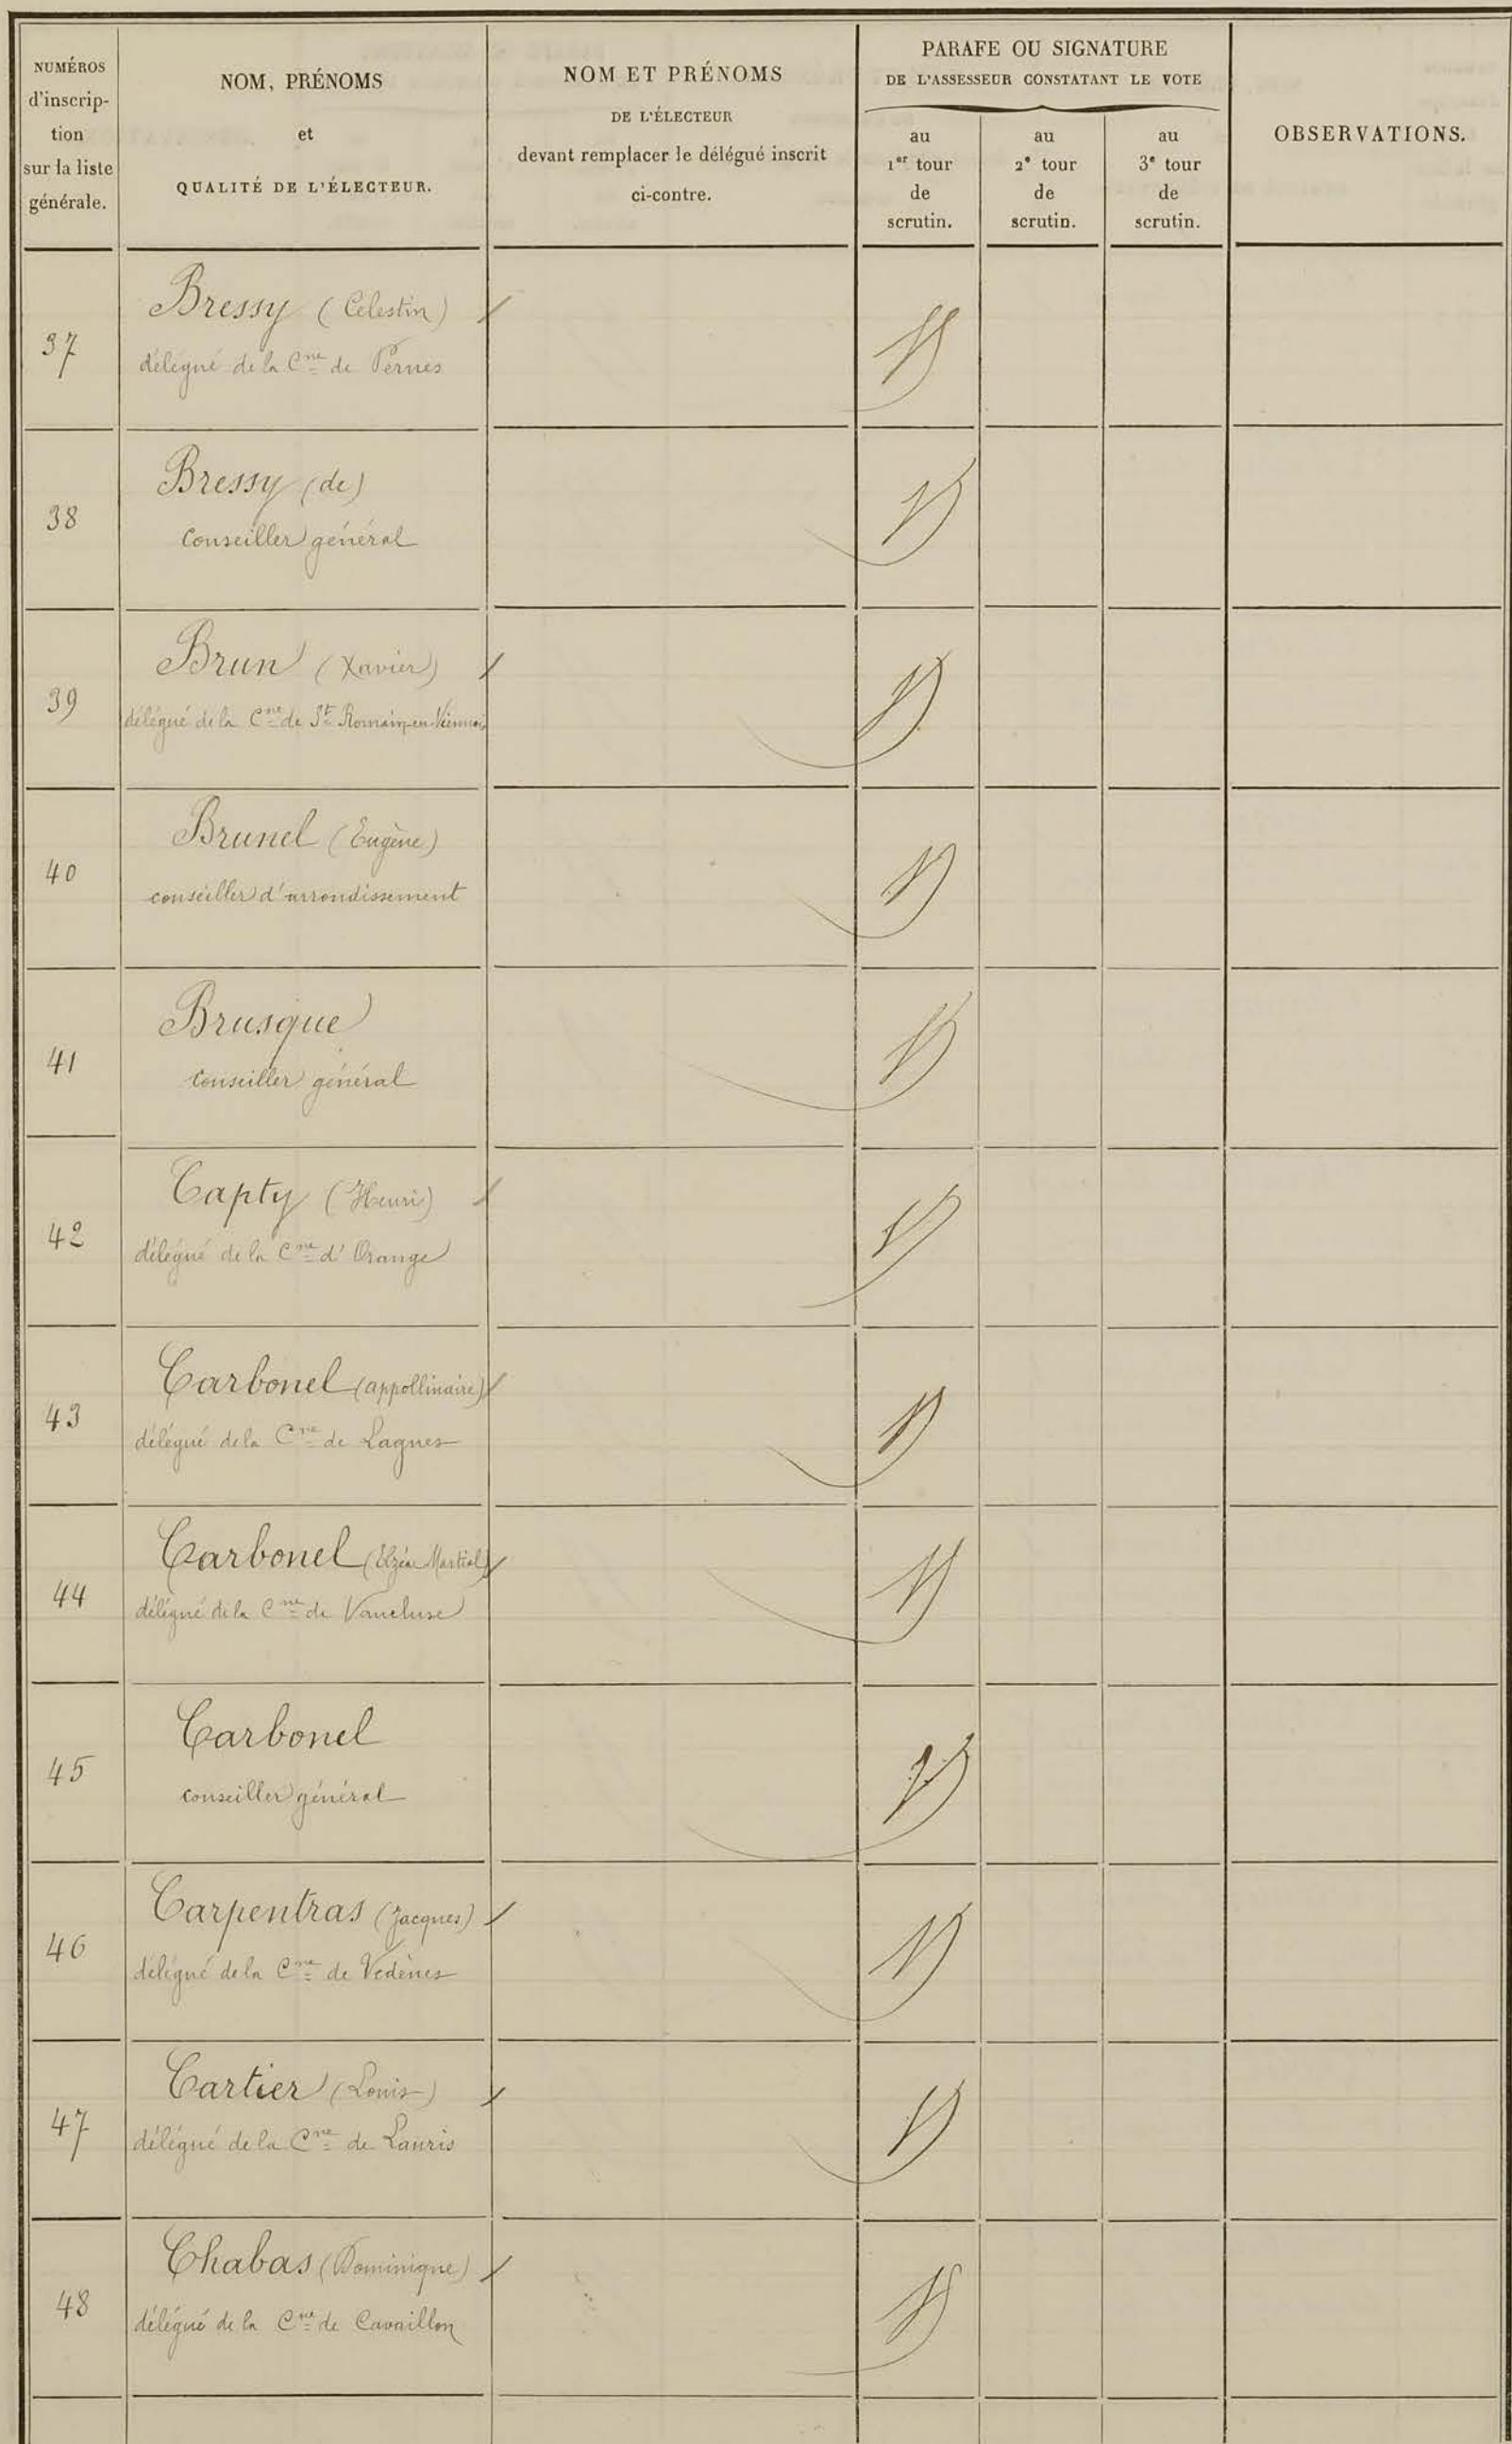 NUMÉROS
d'inscrip-
tion
sur la liste
générale.
NOM, PRÉNOMS
et
QUALITÉ DE L'ÉLECTEUR.
NOM ET PRÉNOMS
DE L'ÉLECTEUR
devant remplacer le délégué inscrit
ci-contre.
PARAFE OU SIGNATURE
DE L'ASSESSEUR CONSTATANT LE VOTE
au
1er tour
de
scrutin.
au
2e tour
de
scrutin.
au
3e tour
de
scrutin.
OBSERVATIONS.
37
Bressy (Célestin)
délégué de la Cne de Pernes
38
Bressy (de)
Conseiller général
39
Brun (Xavier)
délégué de la Cne de St Romain-en-Viennois
40
Brunel (Eugène)
conseiller d'arrondissement
41
Brusque
Conseiller général
42
Capty (Henri)
délégué de la Cne d'Orange
43
Carbonel (appollinaire)
délégué de la Cne de Lagnes
44
Carbonel (Elzéar Martial)
délégué de la Cne de Vaucluse
45
Carbonel
conseiller général
46
Carpentras (Jacques)
délégué de la Cne de Vedènes
47
Cartier (Louis)
délégué de la Cne de Lauris
48
Chabas (Dominique)
délégué de la Cne de Cavaillon